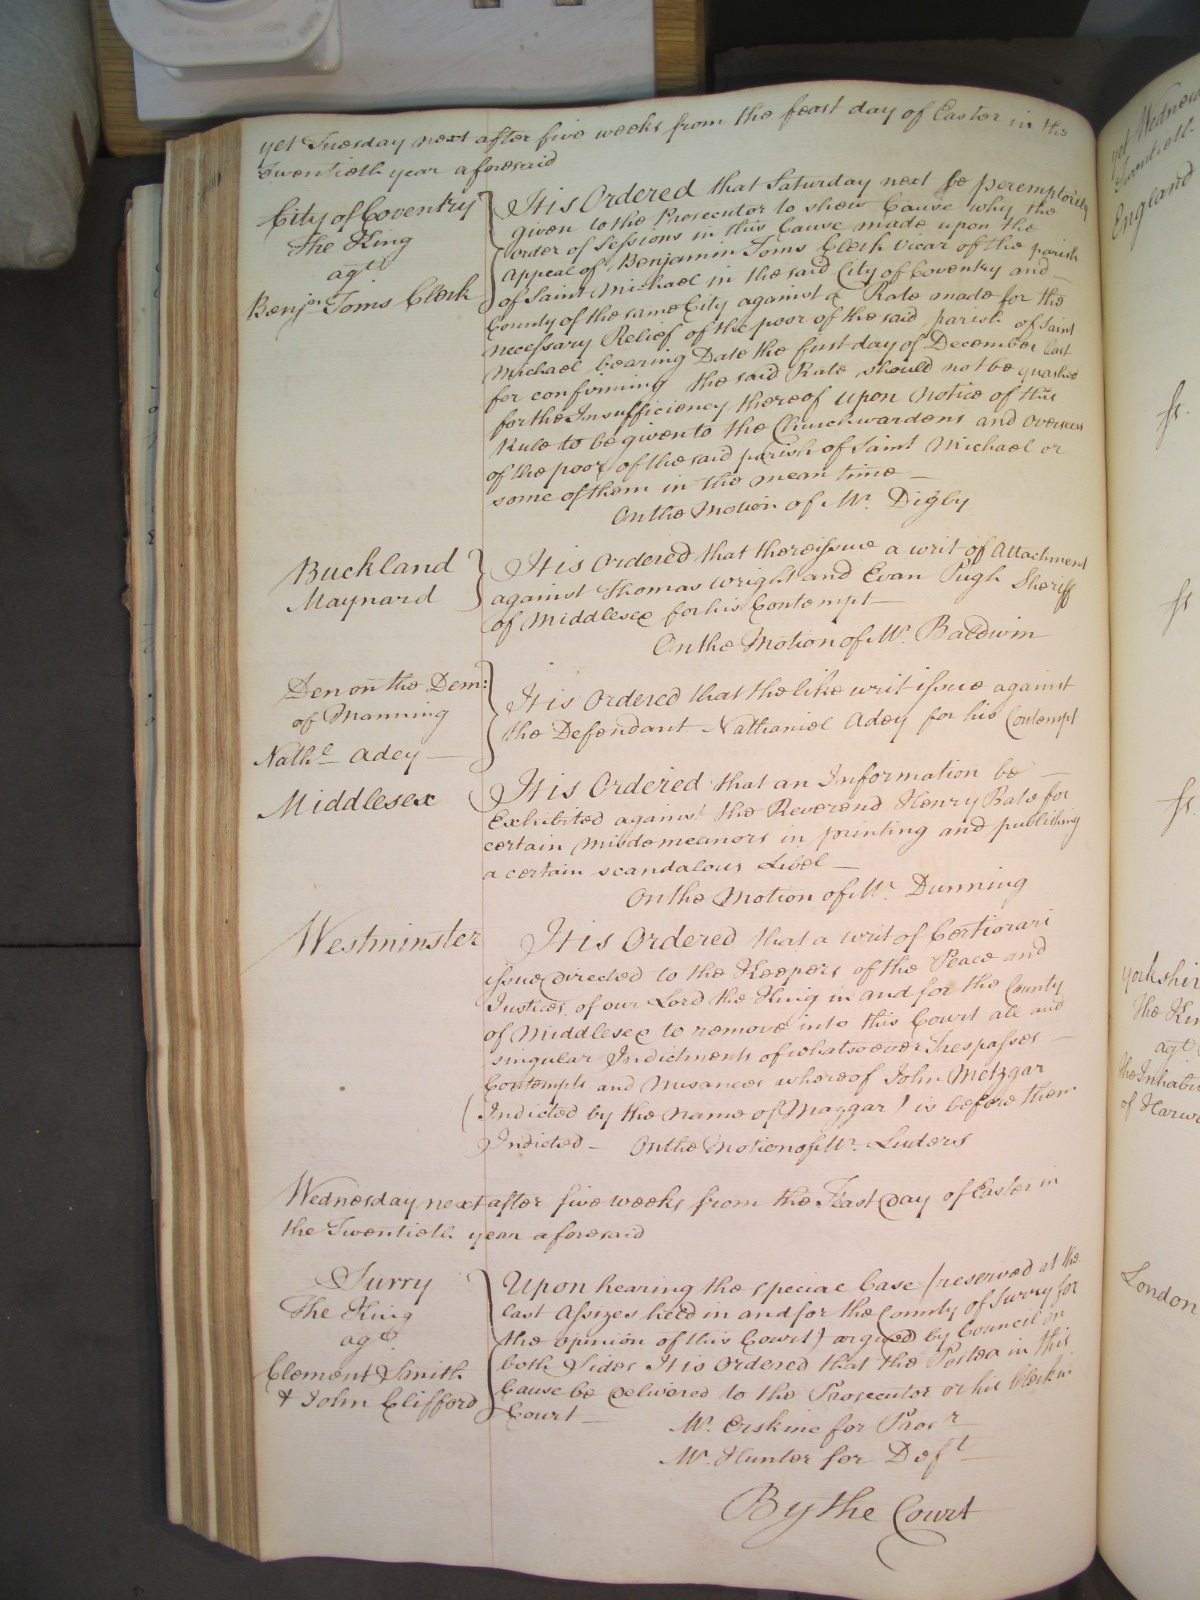 yet Tuesday next after five weeks from the feast day of Easter in the
Twentieth year aforesaid
City of Coventry
The King
agt
Benjn Toms Clerk
It is Ordered that Saturday next be peremptorily
given to the Prosecutor to shew Cause why the
order of Sessions in this Cause made upon the
Appeal of Benjamin Toms Clerk Vicar of the parish
of Saint Michael in the said City of Coventry and
County of the same City against a Rate made for the
necessary Relief of the poor of the said parish of Saint
Michael bearing Date the first day of December last
for confirming the said Rate should not be quashed
for the Insufficiency thereof upon Notice of this
Rule to be given to the Churchwardens and Overseers
of the poor of the said parish of Saint Michael or
some of them in the mean time
On the Motion of Mr. Digby
Buckland
Maynard
It is Ordered that there issue a writ of Attachment
against Thomas Wright and Evan Pugh Sheriff
of Middlesex for his Contempt
On the Motion of Mr. Baldwin
Den on the Dem:
of Manning
Nathl Adey
It is Ordered that the like writ issue against
the Defendant Nathaniel Adey for his Contempt
Middlesex
It is Ordered that an Information be
Exhibited against the Reverend Henry Bate for
certain misdemeanors in printing and publishing
a certain scandalous Libel
On the Motion of Mr. Dunning
Westminster
It is Ordered that a writ of Certiorari
issue directed to the Keepers of the Peace and
Justices of our Lord the King in and for the County
of Middlesex to remove into this Court all and
singular Indictments of whatsoever Trespasses
Contempts and Nusances whereof John Metzgar
(Indicted by the name of Mazgar) is before them
Indicted On the Motion of Mr. Luders
Wednesday next after five weeks from the Feast Day of Easter in
the Twentieth year aforesaid
Surry
The King
agt
Clement Smith
& John Clifford
Upon hearing the special Case (reserved at the
last Assizes held in and for the County of Surry for
the opinion of this Court) argued by Council on
both Sides It is Ordered that the Postea in this
Cause be delivered to the Prosecutor or his Clerk in
Court
Mr. Erskine for Prosr
Mr. Hunter for Deft
By the Court
yet Wednes
Twentieth
England
fr.
fr
fr.
Yorkshir
The Kin
agt
the Inhabi
of Harw
London